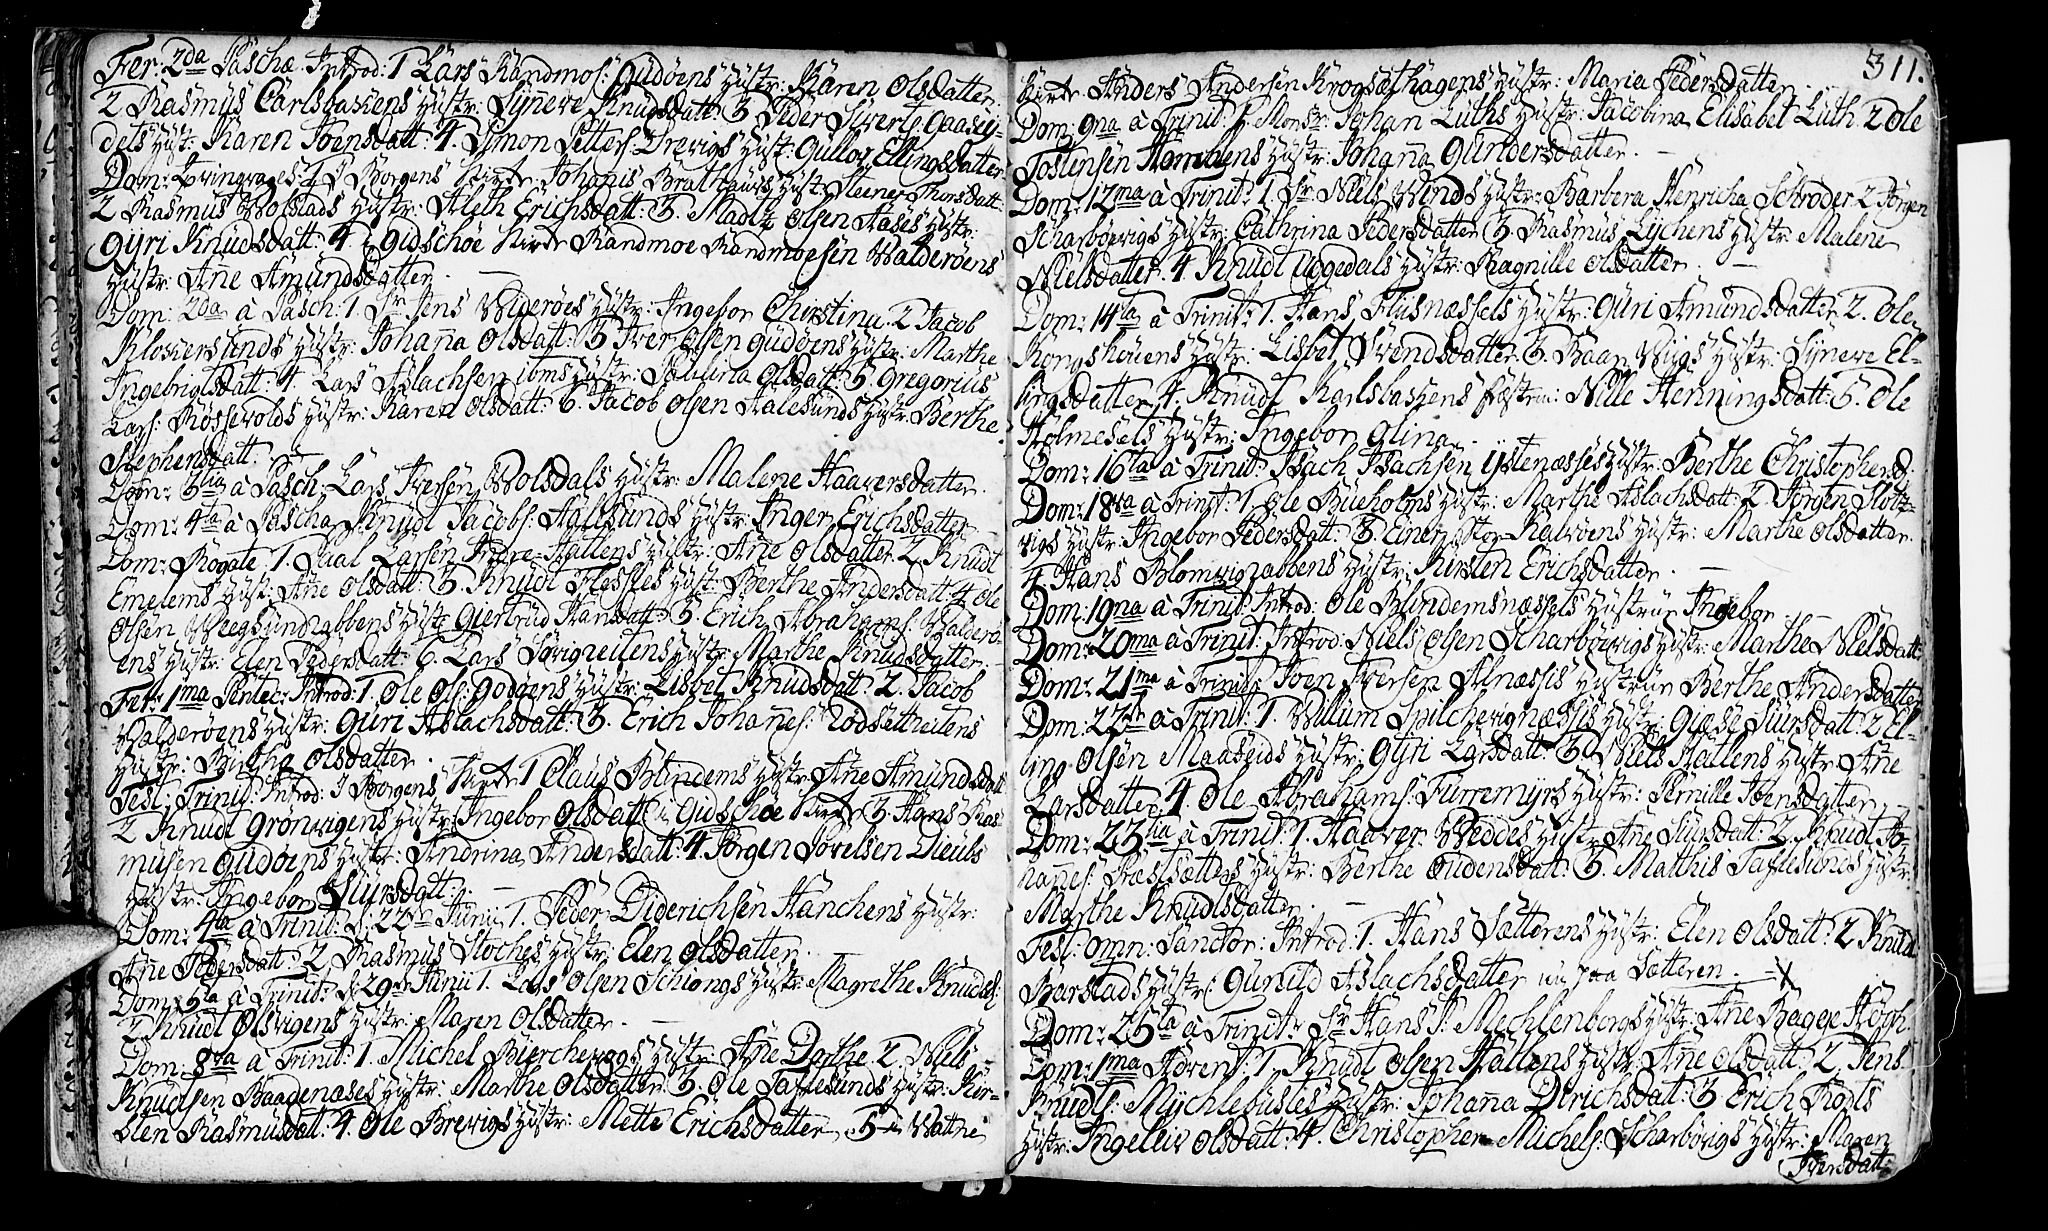 Fer: 2da Paschæ Introd: 1 Lars Randmos: Gudöens hustr: Karen Olsdatter:
2 Rasmus Carlsbachens hustr: Synneve Knudsdatt: 3 Peder Siverts: Gaasey-
dets hust: Karen Joensdatt: 4. Simon Petters: Drevigs hust: Gullov Ellingsdatter
Dom: I Borgens Kirke Johanis Brathaugs hust: Steener Thorsdatt:
2 Rasmus Wolstads hustr: Aleth Erichsdatt: 3. Madtz Olsen Aases hustr:
Gyri Knudsdatt: 4 i Gidschöe Kirke Randmoe Randmoesen Walderöens
hustr: Ane Amundsdatter. —
Dom: 2da à Pasch: 1. Sr Jens Widerøes hustr: Ingebor Christina. 2 Jacob
Klokersunds hustr: Johanna Olsdatt: 3 Iver Olsen Gudöens hustr: Marthe
Ingebrigtsdatt: 4. Lars Aslachsen ibms hustr: Olsdatt: 5. Gregorius
Lars: Rödsevolds hustr: Karen Olsdatt: 6. Jacob Olsen Aalesunds hustr: Berthe
Stephensdatt: —
Dom: 3tia à Pasch: Lars Iversen Wolsdals hustr: Malene Haaversdatter.
Dom: 4ta à Pascha Knudt Jacobs: Aalesunds hustr: Inger Erichsdatter
Dom: Rogate, 1. Paal Larsen Indre-Hattens hustr: Ane Olsdatter 2 Knudt
Emelems hust: Ane Olsdatt: 3. Knudt Flesfles hust: Berthe Andersdatt: 4 Ole
Olsen Weegsundnabbens hustr: Giertrud Hansdatt: 5. Erich Abrahams: Waldero-
ens hustr: Elen Pedersdatt: 6. Lars Sovigneitens hustr: Marthe Knudsdatter. —
Fer: 1ma Pentec: Introd: 1. Ole Ols: Godöens hustr: Lisbet Knudsdatt: 2. Jacob
Walderöens hustr: Guri Aslachsdatt: 3. Erich Johannes: Rodsetheitens
hustr: Birthe Olsdatter.
Fest: Trinit: Introd: I Borgens Kirke 1 Claus Blindems hustr: Ane Amundsdatt:
2 Knudt Grönvigens hustr: Ingebor Olsdatt: i Gidschöe Kirke 3. Hans Ras-
musen Gudöens hustr: Andrina Andersdatt: 4. Jörgen Povelsen Dieubs
hustr: Ingebor Siursdatt: —
Dom: 4ta à Trinit: d: 22de Junii 1. Peder Diderichsen Hanchens hustr:
Ane Pedersdatt: 2 Rasmus Stoches hustr: Elen Olsdatter.
Dom: 5ta à Trinit: d: 29de Junii 1. Lars Olsen Schiongs hustr: Magrethe Knuds:
2 Knudt Olsvigens hustr: Maren Olsdatter. —
Dom: 8va à Trinit: 1. Michel Bierchevogs hustr: Ane Dorthe 2. Niels
Knudtsen Baadenæses hustr: Marthe Olsdatter. 3. Ole Taflesunds hustr: Kir-
sten Rasmusdatt: 4. Ole Brevigs hustr: Mette Erichsdatter. 5 i Vattne
311.
kirke Anders Andersen Krogsæthagens hustr: Maria Pedersdatter.
Dom: 9na à Trinit: 1 Monsr: Johan Lüths hustr: Jacobina Elisabet Lüth. 2 Ole
Tostensen hustr: Johanna Gundersdatter. —
Dom: 12ma à Trinit: 1. Sr Niels Winds hustr: Barbera Henricha Schröder 2 Jörgen
Scharbövigs hustr: Cathrina Pedersdatter 3. Rasmus Lychens hustr: Malene
Nielsdatter. 4. Knudt Uggedals hustr: Ragnille Olsdatter. —
Dom: 14ta à Trinit: 1. Hans Flisnæssets hustr: Guri Amundsdatter 2. Ole
Kongshougens hustr: Lisbet Svendsdatter. 3. Baar Wiigs hustr: Synneve El-
lingsdatter 4. Knudt Karlsbachens fæstm: Nille Henningsdatt: 5. Ole
Holmesets hustr: Ingebor Olina.
Dom: 16ta à Trinit: Isach Isachsen Ystenæsses hustr: Berthe Christophersd:
Dom: 18va à Trinit: 1 Ole Bueholms hustr: Marthe Aslachsdatt: 2 Jörgen Slotz-
vigs hustr: Ingebor Pedersdatt: 3. Einer Stor-Kalvöens hustr: Marthe Olsdatter
4. Hans Blomvignabbens hustr: Kirsten Erichsdatter. —
Dom: 19na à Trinit: Introd: Ole Blindemsnæssets hustrue Ingebor. —
Dom: 20ma à Trinit: Introd: Niels Olsen Scharbövigs hustr: Marthe Nielsdatt:
Dom: 21ma à Trinit: Joen Iversen Alnæsses hustrue Berthe Andersdatter
Dom: 22de à Trinit: 1. Willum Spilchevignæssis hustr: Giæse Siursdatt: 2 El-
ling Olsen Maaseids hustr: Gyri Larsdatt: 3. Niels Hatlens hustr: Ane
Larsdatter 4 Ole Abrahams: Furremyrs hustr: Pernille Joensdatter
Dom: 23tia à Trinit: 1. Haaver Weddes hustr: Ane Siursdatt: 2. Knudt Jo-
hannes: Præstsætters hustr: Berthe Oudensdatt: 3. Matthis Taflesunds hustr:
Marthe Knudtsdatter. —
Fest: omn: Sanctor: Introd: 1. Hans Sætterens hustr: Elen Olsdatt: 2 Knudt
Barstads hustr: Gunild Aslachsdatter nu paa Sætteren. —
Dom: 25ta à Trinit: Sr Hans P: Mechlenborgs hustr: Ane Bagge Høgh
Dom: 1ma Advent: 1 Knudt Olsen Hatlens hustr: Ane Olsdatt: 2. Jens
Knudts: Mychlebustes hustr: Johanna Dirichsdatt: 3 Erich Rödts
hustr: Ingeleiv Olsdatt: 4. Christopher Michels: Scharbövigs hustr: Maren
Iversdatt: